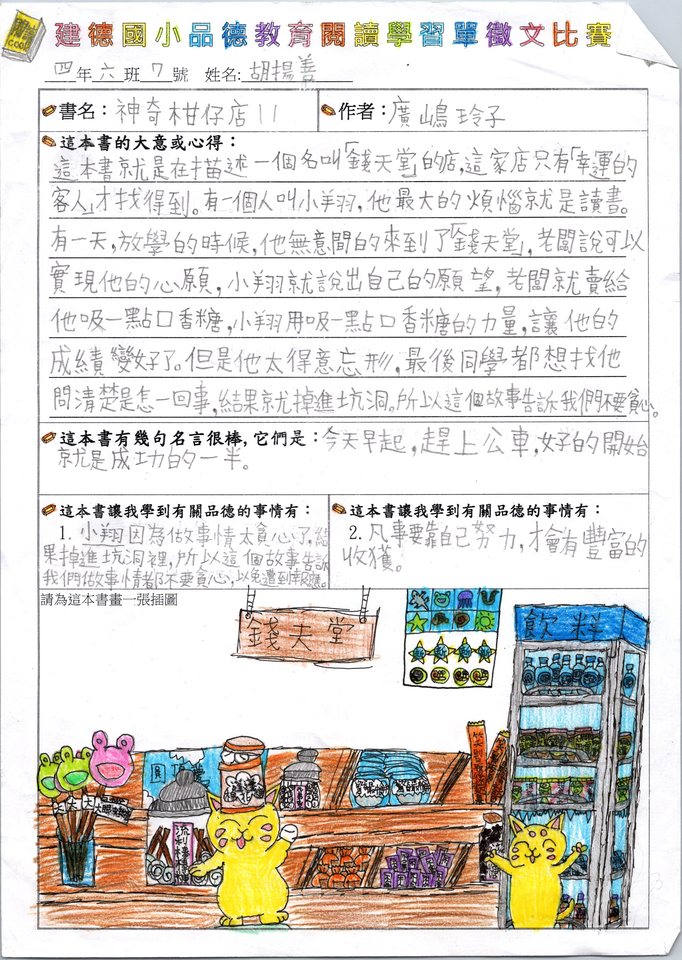 建德國小品德教育閱讀學習單徵文比賽
四年六班7號 姓名:胡揚善
書名：神奇柑仔店11
作者：廣嶋玲子
這本書的大意或心得：
這本書就是在描述一個名叫「錢天堂」的店，這家店只有「幸運的
客人」才找得到。有一個人叫小羽，他最大的煩惱就是讀書。
有一天，放學的時候，他無意間的來到了「錢天堂」，老闆說可以
實現他的心願，小翔就說出自己的願望，老闆就賣給
他吸一點口香糖，小翔用吸一點口香糖的力量，讓他的
成績變好了。但是他太得意忘形，最後同學都想找他
問清楚是怎一回事，結果就掉進坑洞。所以這個故事告訴我們不要貪心。
這本書有幾句名言很棒，它們是：今天早起，趕上公車，好的開始
就是成功的一半。
這本書讓我學到有關品德的事情有：
1. 小翔因為做事情太貪心了，結
果掉進坑洞裡，所以這個故事告訴
我們做事情都不要貪心，以免遭到
這本書讓我學到有關品德的事情有：
2. 凡事要靠自己努力，才會有豐富的
收獲。
請為這本書畫一張插圖
錢天堂
飲料